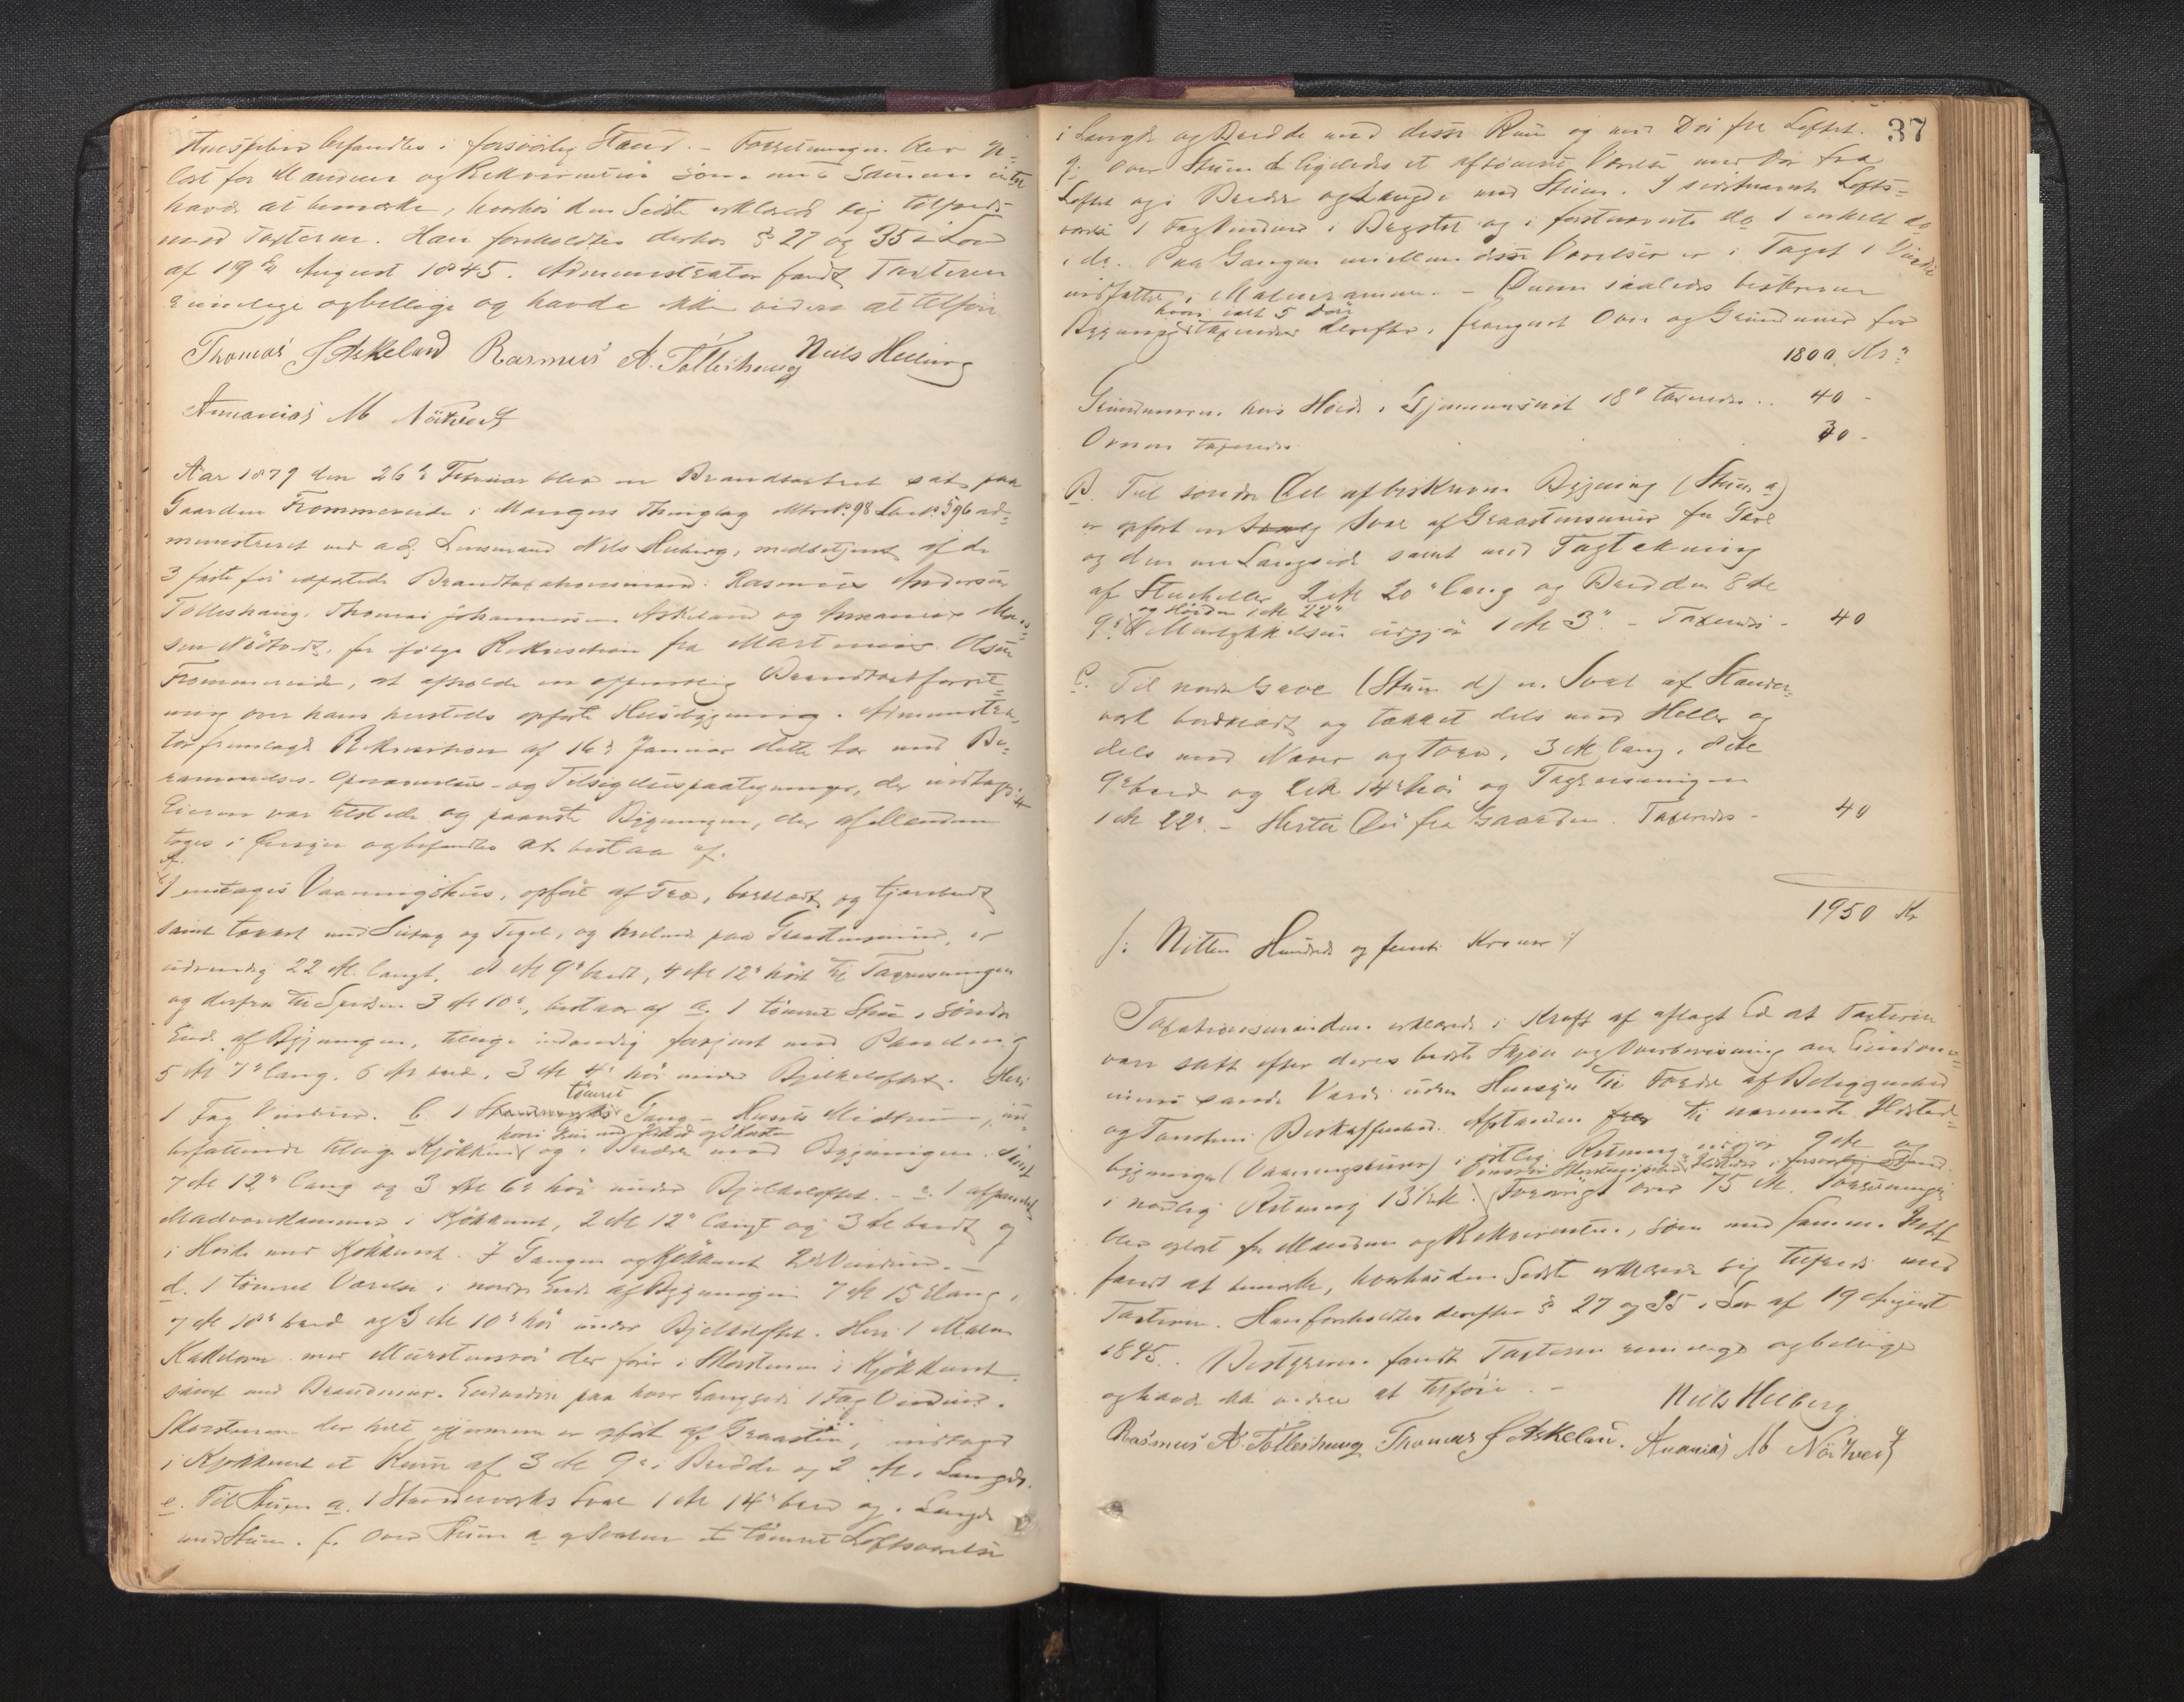 Husfliden befandtes i forsvarlig Stand. – Forretningen blev op=
læst for Mændene og Rekvirenten som med Samme intet
havde at bemærke, hvorhos den Sidste erklærede sig tilfreds
med Taxterne. Han foreholdtes derhos § 27 og 35 i Lov
af 19de August 1845. Administrator fandt Taxterne
rimelige og billige og havde ikke videre at tilføie
Thomas J Askeland Rasmus A. Tolleshaug Niels Helberg
Ananias M Nøttveit
Aar 1879 den 26de Februar blev en Brandtaxtret sat paa
Gaarden Frommereide i Mangers Thinglag Matr. No. 98 Løb No. 396 ad=
ministreret ved adj. Lensmand Niels Helberg, medbetjent af de
3 faste för edfæstede Brandtaxationsmænd: Rasmus Andersen
Tolleshaug, Thomas Johannessen Askeland og Ananias Mon=
sen Nøtvedt, for ifølge Rekvisition fra Martinus Olsen
Frommereide, at afholde en offentlig Brandtaxtforret=
ning over hans hersteds opførte Husbygning. Administra=
tor fremlagde Rekvisition af 16de Januar dette Aar med Be=
rammelses- Opnævnelses- og Tilsigelsespaategninger, der indtages:
Eieren var tilstede og paaviste Bygningen, der af Mændene
toges i Øiesyn og befandtes at bestaa af.
A.
1 enetages Vaaningshus, opført af Træ, bordklædt og tjærebredt
samt tækket med Sutag og Tegel, og hvilende paa Graastensmuur, er
udvendig 22 Al. langt, 8 Al 9" bredt, 4 Al 12" høit til Tagreisningen
og derfra til Spidsen 3 Al 10", bestaar af a. 1 tømret Stue i søndre
Ende af Bygningen, tillige indvendig forsynet med Paneling
5 Al 7" lang, 6 Al bred, 3 Al 4" høi under Bjelkeloftet. Heri
1 Fag Vinduer. b. 1 tömret Gang – Husets Midtrum, in=
befattende tillige Kjøkkenet hvori Gruve med Ildsted og Skorsten og i Bredde med Bygningen samt
7 Al 12" lang og 3 Al 6" høi under Bjelkeloftet. – c. 1 afpanelet
Madvarekammer i Kjøkkenet, 2 Al 12" langt og 3 Al bredt og
i Høide med Kjøkkenet. I Gangen og Kjøkkenet 2 Fag Vinduer. –
d. 1 tømret Værelse i nordre Ende af Bygningen 7 Al 15" lang,
7 Al 10" bred og 3 Al 10" høi under Bjelkeloftet. Heri 1 Malm
Kakkelovn med Murstensrør der fører i Skorstenen i Kjøkkenet
samt med Brandmuur. Endvidere paa hver Langside 1 Fag Vinduer.
Skorstenen der helt igjennem er opført af Graasten, indtager
i Kjøkkenet et Rum af 3 Al 9" i Bredde og 2 Al i Længde.
e. Til Stuen a. 1 Standerværks Sval 1 Al 14" bred og i Længde
med Stuen. f. Over Stuen a og Svalen et tømret Loftsværelse
37
i Længde og Bredde med disse Rum og med Dør fra Loftet.
g. Over Stuen d ligeledes et aftømret Værelse med Dør fra
Loftet og i Bredde og Længde med Stuen. I sidstnævnte Lofts=
værelse 1 Fag Vinduer i Brystet og i førstnævnte do 1 enkelt do
i do. Paa Gangen imellem disse Værelser er i Taget 1 Vindu
indfattet i Malmramme. – Denne saaledes beskrevne
Bygning hvori ialt 5 Døre taxeredes derefter, fraregnet Ovn og Grundmuur for
1800 Kr "
Grundmuren hvis Høide i Gjennemsnit 18" taxeredes .. 40 -
Ovnen taxeredes 30 -
B. Til søndre Del af beskrevne Bygning (Stuen a)
er opført en Sval af Graastensmuur for Gavl
og den ene Langside samt med Tagtækning
af Steenheller 2 Al 20" lang og Bredden 8 Al
9" og Høiden 1 Al 22" Murtykkelsen udgjør 1 Al 3". – Taxeredes – 40
C. Til nordre Gavl (Stuen d) en Sval af Stander=
værk bordklædt og tækket dels med Heller og
dels med Næver og Torv, 3 Al lang, 8 Al
9" bred og 2 Al 14" høi og Tagreisningen
1 Al 22". – Hertil Dør fra Gaarden. Taxeredes – 40
1950 Kr
/: Nitten Hundrede og femti Kroner :/
Taxationsmændene erklærede i Kraft af aflagt Ed at Taxterne
vare satt efter deres bedste Skjøn og Overbevisning om Eiendom=
mens sande Værdi uden Hensyn til Fordel af Beliggenhed
og Tomtens Beskaffenhed. Afstanden til nærmeste Ildsted=
bygninger (Vaaningshuse) i østlig Retning udgjør 9 Al og
i nordlig Retning 13½ Al. Forøvrigt over 75 Al. Forretningen
blev oplæst for Mændene og Rekvirenten, som med Samme Intet
fandt at bemærke, hvorhos den Sidste erklærede sig tilfreds med
Taxterne. Han foreholdtes derefter § 27 og 35 i Lov af 19 August
1845. Bestyreren fandt Taxterne rimelige og billige
og havde ikke videre at tilføie. –
Niels Helberg
Rasmus A. Tolleshaug Thomas J Askeland. Ananias M Nøttveit